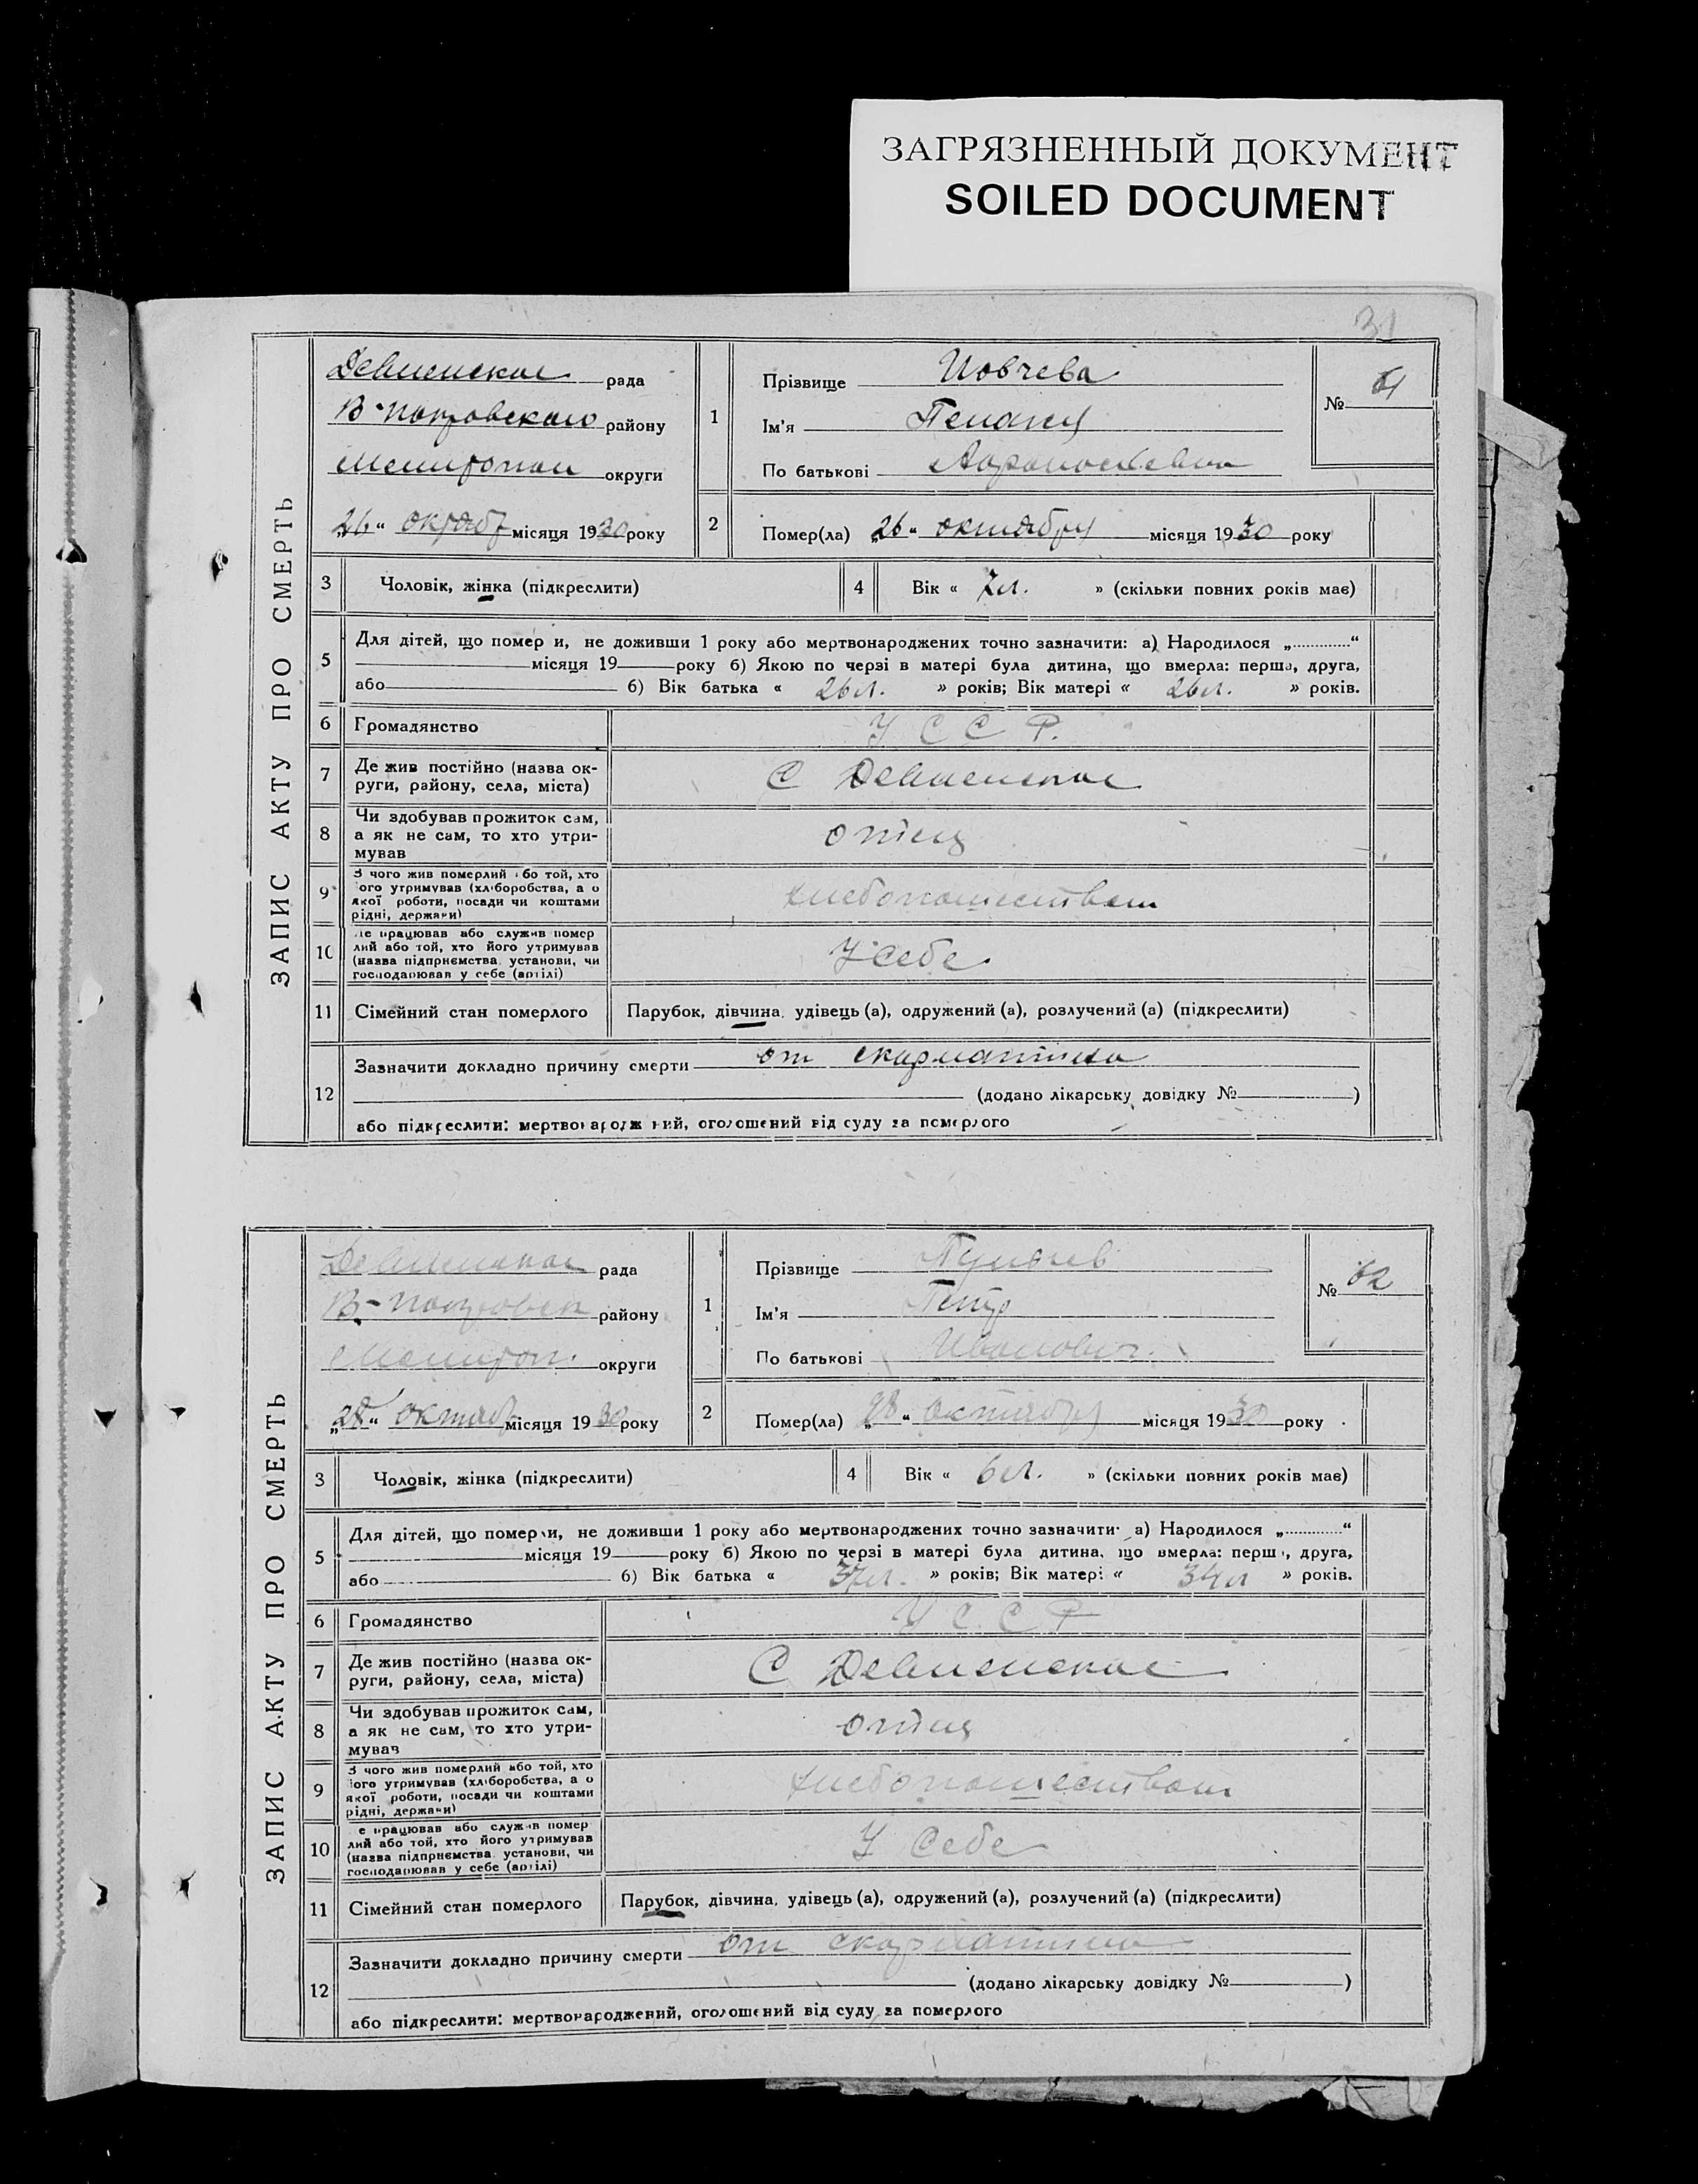 ЗАГРЯЗНЕННЫЙ ДОКУМЕНТ
SOILED DOCUMENT
31
ЗАПИС АКТУ ПРО СМЕРТЬ
Девненское рада
В-Покровского району
Мелитопол округи
„26“ октябр місяця 1930 року
1
Прізвище Иовчева
Ім’я Пелагия
По батькові
№ 61
2
Помер(ла) „26“ октября місяця 1930 року
3 Чоловік, жінка (підкреслити)
4 Вік « 7 л. » (скільки повних років має)
5
Для дітей, що помер и, не доживши 1 року або мертвонароджених точно зазначити: а) Народилося „ “
місяця 19 року б) Якою по черзі в матері була дитина, що вмерла: перша, друга,
або б) Вік батька « 26 л. » років; Вік матері « 26 л. » років.
6 Громадянство У С С Р.
7 Де жив постійно (назва ок-
руги, району, села, міста)
С Девненское
8 Чи здобував прожиток сам,
а як не сам, то хто утри-
мував
отец
9 З чого жив померлий або той, хто
ого утримував (хліборобства, а о
якої роботи, посади чи коштами
рідні, держави)
хлебопашеством
10 е працював або служив помер
лий або той, хто його утримував
(назва підприємства установи, чи
господарював у себе (артілі)
У себе
11 Сімейний стан померлого Парубок, дівчина, удівець (а), одружений (а), розлучений (а) (підкреслити)
12 Зазначити докладно причину смерти от скарлатина
(додано лікарську довідку № )
або підкреслити: мертвонароджений, оголошений від суду за померлого
ЗАПИС АКТУ ПРО СМЕРТЬ
Девненское рада
В-Покровск району
Мелитоп. округи
„28“ октябр місяця 1930 року
1
Прізвище
Ім’я Петр
По батькові Иванович.
№ 62
2
Помер(ла) „28“ октября місяця 1930 року
3 Чоловік, жінка (підкреслити)
4 Вік « 6 л. » (скільки повних років має)
5
Для дітей, що померли, не доживши 1 року або мертвонароджених точно зазначити: а) Народилося „ “
місяця 19 року б) Якою по черзі в матері була дитина, що вмерла: перша, друга,
або б) Вік батька « 37 л. » років; Вік матері « 34 л » років.
6 Громадянство У С С Р
7 Де жив постійно (назва ок-
руги, району, села, міста)
С Девненское
8 Чи здобував прожиток сам,
а як не сам, то хто утри-
мував
отец
9 З чого жив померлий або той, хто
ого утримував (хліборобства, а о
якої роботи, посади чи коштами
рідні, держави)
хлебопашеством
10 е працював або служив помер
лий або той, хто його утримував
(назва підприємства установи, чи
господарював у себе (артілі)
У себе
11 Сімейний стан померлого Парубок, дівчина, удівець (а), одружений (а), розлучений (а) (підкреслити)
12 Зазначити докладно причину смерти от скарлатина
(додано лікарську довідку № )
або підкреслити: мертвонароджений, оголошений від суду за померлого